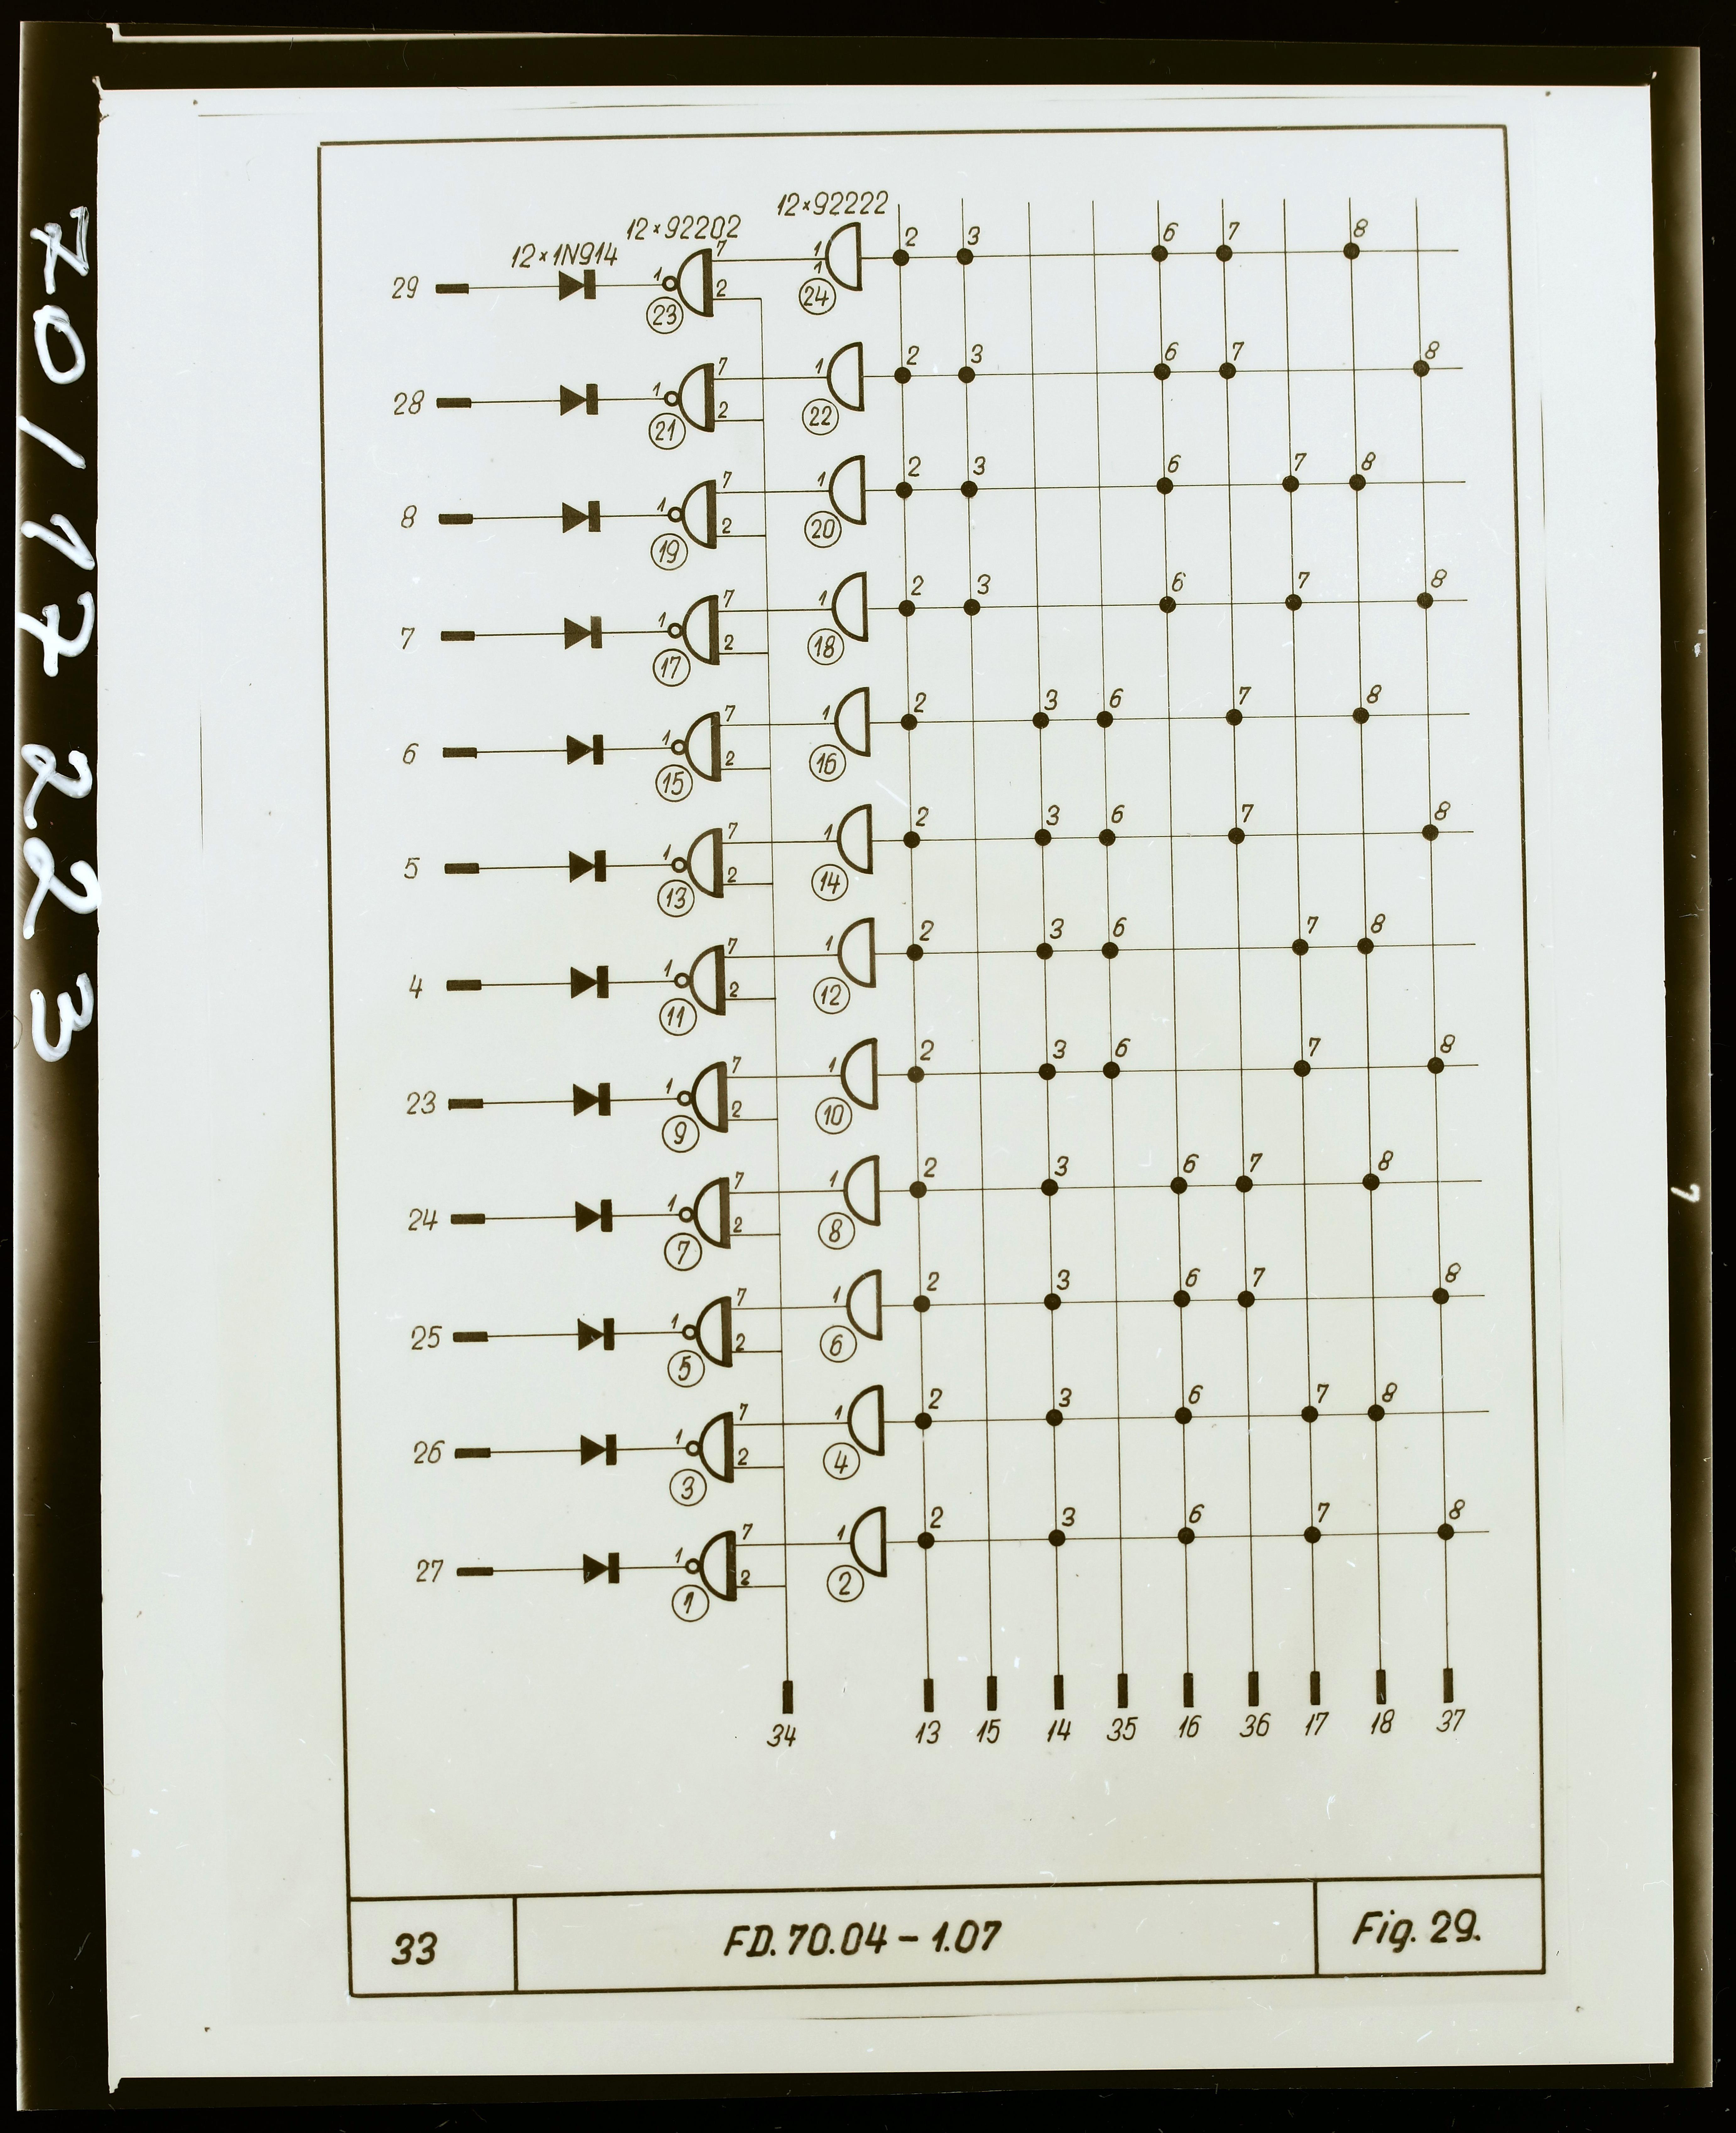 70117223
12×92222
12×92202
12×1N914
2 3 6 7 8
29 1 7 2 1 1
23 24
2 3 6 7 8
28 1 7 2 1
21 22
2 3 6 7 8
8 1 7 2 1
19 20
2 3 6 7 8
7 1 7 2 1
17 18
2 3 6 7 8
6 1 7 2 1
15 16
2 3 6 7 8
5 1 7 2 1
13 14
2 3 6 7 8
4 1 7 2 1
11 12
2 3 6 7 8
23 1 7 2 1
9 10
2 3 6 7 8
24 1 7 2 1
7 8
2 3 6 7 8
25 1 7 2 1
5 6
2 3 6 7 8
26 1 7 2 1
3 4
2 3 6 7 8
27 1 7 2 1
1 2
34 13 15 14 35 16 36 17 18 37
33 FD.70.04-1.07 Fig. 29.